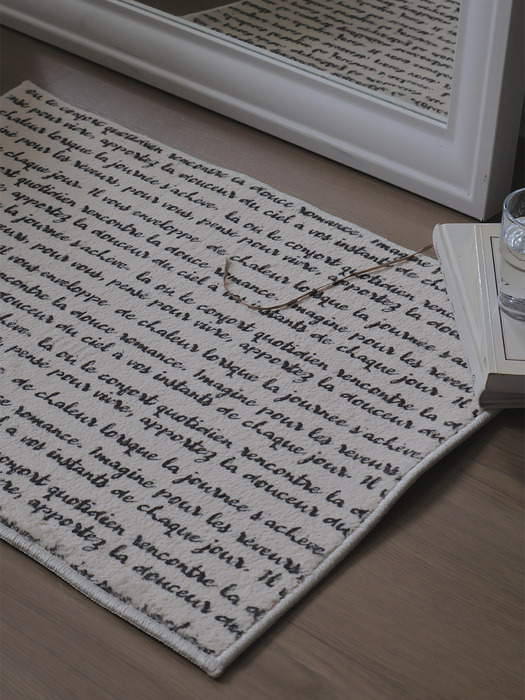 où le confort quotidien rencontre la douce romance. Imagine
pour vivre, apportez la douceur du ciel à vos instants de
chaleur lorsque la journée s'achève. là où le confort quotidien
pour les rêveurs, pour vous, pensé pour vivre, apportez la
chaque jour. Il vous enveloppe de chaleur lorsque la journée
quotidien rencontre la douce romance. Imagine pour les
la douceur du ciel à vos instants de chaque jour. Il
journée s'achève. là où le confort quotidien rencontre la
pour vous, pensé pour vivre, apportez la douceur
vous enveloppe de chaleur lorsque la journée s'achève.
la douce romance. Imagine pour les rêveurs,
douceur du ciel à vos instants de chaque jour. Il
là où le confort quotidien rencontre la
pensé pour vivre, apportez la douceur du
de chaleur lorsque la journée s'achève.
romance. Imagine pour les rêveurs,
à vos instants de chaque jour. Il
confort quotidien rencontre la
apportez la douceur